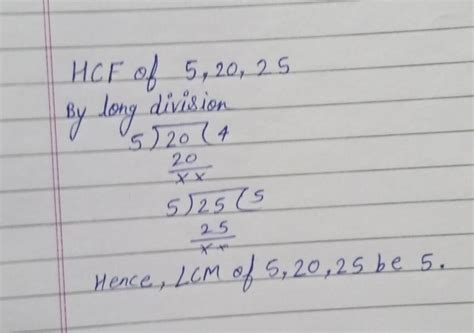 HCF of 5, 20, 25
By long division
5)20(4
20
xx
5)25(5
25
xx
Hence, LCM of 5, 20, 25 be 5.